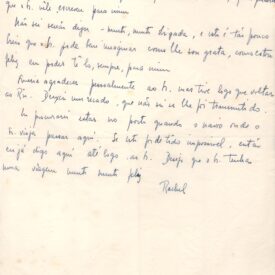 que o Sr. vele escrever para mim
Não sei senão dizer - muito, muito obrigada, e isto é tão pouco
Sr. pode bem imaginar como lhe sou grata, como estou
feliz em poder tê-lo, sempre, para mim.
Queria agradecer pessoalmente ao Sr. mas tive logo que voltar
ao Rio. Deixei um recado, que não sei se lhe foi transmitido.
Eu procurarei estar no porto quando o navio onde o
Sr. viaja passar aqui. Se isto for de todo impossível, então
eu já digo aqui até logo ao Sr. Desejo que o Sr. tenha
uma viagem muito muito feliz
Rachel